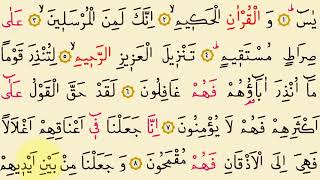 يٰسٓ ۝١ وَ الْقُرْاٰنِ الْحَكِيْمِ ۝٢ اِنَّكَ لَمِنَ الْمُرْسَلِيْنَ ۝٣ عَلٰى
صِرَاطٍ مُّسْتَقِيْمٍ ۝٤ تَنْزِيْلَ الْعَزِيْزِ الرَّحِيْمِ ۝٥ لِتُنْذِرَ قَوْمًا
مَّاۤ اُنْذِرَ اٰبَآؤُهُمْ فَهُمْ غٰفِلُوْنَ ۝٦ لَقَدْ حَقَّ الْقَوْلُ عَلٰۤى
اَكْثَرِهِمْ فَهُمْ لَا يُؤْمِنُوْنَ ۝٧ اِنَّا جَعَلْنَا فِيْۤ اَعْنَاقِهِمْ اَغْلٰلًا
فَهِيَ اِلَى الْاَذْقَانِ فَهُمْ مُّقْمَحُوْنَ ۝٨ وَ جَعَلْنَا مِنْۢ بَيْنِ اَيْدِيْهِمْ